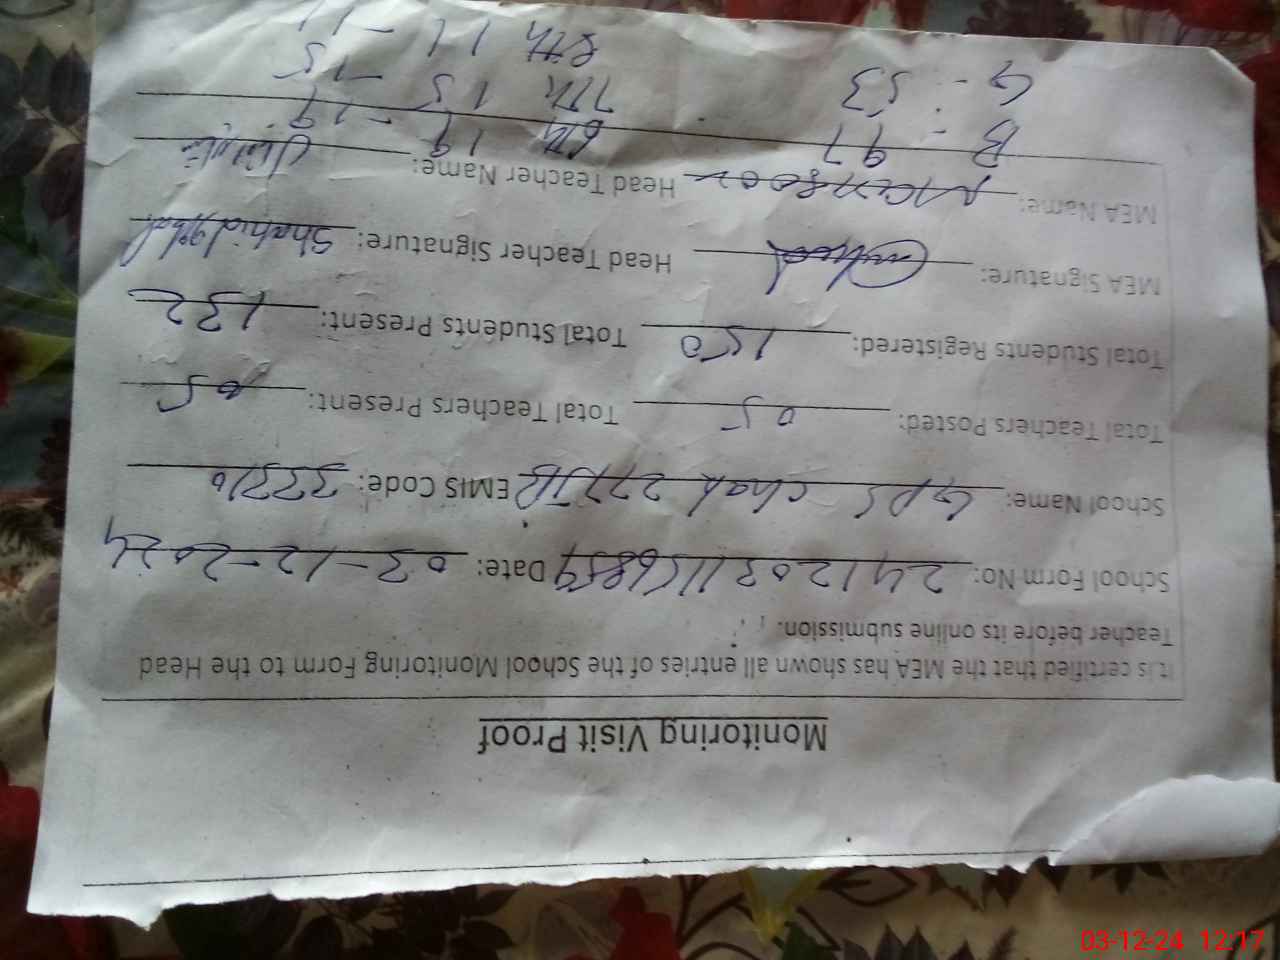 Monitoring Visit Proof
It is certified that the MEA has shown all entries of the School Monitoring Form to the Head
Teacher before its online submission.
School Form No: 2412031156859 Date: 03-12-2024
School Name: GPS chak 277JB EMIS Code:
Total Teachers Posted: 05 Total Teachers Present: 05
Total Students Registered: 150 Total Students Present: 132
MEA Signature: Head Teacher Signature: Shahid Iqbal
MEA Name: Head Teacher Name:
B - 97 6th 19 - 19
G - 53 7th 15 - 15
8th 11 - 11
03-12-24 12:17